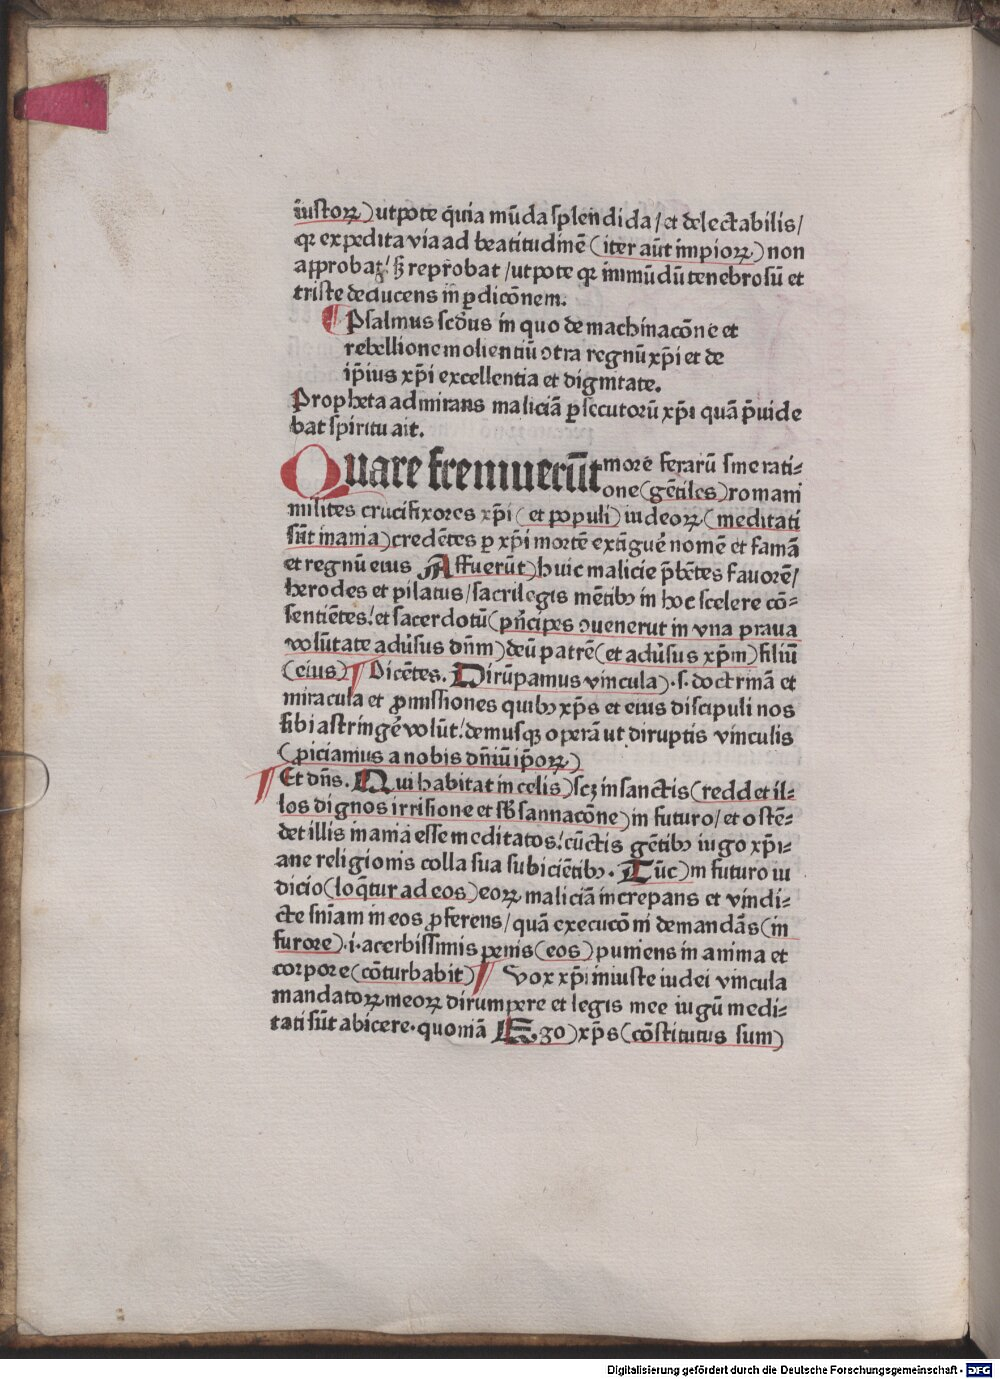 iustoꝝ) utpote q̄uia mūda splendida/et delectabilis/
qꝛ expedita via ad beatitudinē (iter aūt impioꝝ) non
approbat/ sꝫ reprobat/utpote qꝛ immūdū tenebrosū et
triste deducens in ꝑdicōnem.
¶ Psalmus scd̄us in quo de machinacōne et
rebellione molientiū ↄtra regnū xp̄i et de
ip̄ius xp̄i excellentia et dignitate.
Propheta admirans maliciā ꝑsecutorū xp̄i quā p̄uide
bat sp̄iritu ait.
Quare fremuerūt more ferarū sine rati-
one (gētiles) romani
milites crucifixores xp̄i (et populi) iudeoꝝ (meditati
sūt inania) credētes ꝑ xp̄i mortē extīguē nomē et famā
et regnū eius Affuerūt) huic malicie p̄bētes fauorē/
herodes et pilatus/sacrilegis mētibꝫ in hoc scelere cō-
sentiētes/ et sacerdotū (pn̄cipes ↄuenerut in vna praua
volūtate adu̓sus dn̄m) deū patrē (et adu̓sus xp̄m) filiū
(eius) ¶ Dicētes. Dirūpamus vincula) .s. doctrinā et
miracula et ꝓmissiones quibꝫ xp̄s et eius discipuli nos
sibi astringē volūt/ demusqꝫ operā ut diruptis vinculis
(ꝓiciamus a nobis dn̄iū ip̄oꝝ)
¶ Et dn̄s. Qui habitat in celis) scꝫ in sanctis (redd et il-
los dignos irrisione et sb̄sannacōne) in futuro/ et ostē-
det illis inania esse meditatos/ cūctis gētibꝫ iugo xp̄i-
ane religionis colla sua subiciētibꝫ. Tūc) in futuro iu
dicio (loq̄tur ad eos) eoꝝ maliciā increpans et vindi-
cte sn̄iam in eos ꝓferens/ quā execucōni demandās (in
furore) .i. acerbissimis penis (eos) puniens in anima et
corpore (cōturbabit) ¶ Vox xp̄i iniuste iudei vincula
mandatoꝝ meoꝝ dirumpere et legis mee iugū medi-
tati sūt abicere. quoniā Ego) xp̄s (cōstitutus sum)
Digitalisierung gefördert durch die Deutsche Forschungsgemeinschaft - DFG